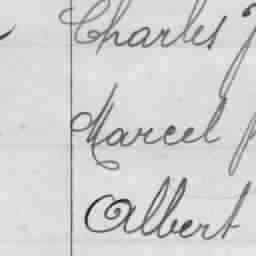 Charles
Marcel
Albert